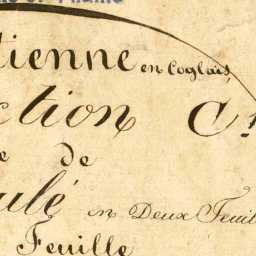 tienne en Coglais,
ction C
e de
ulé en Deux Feuil
Feuille